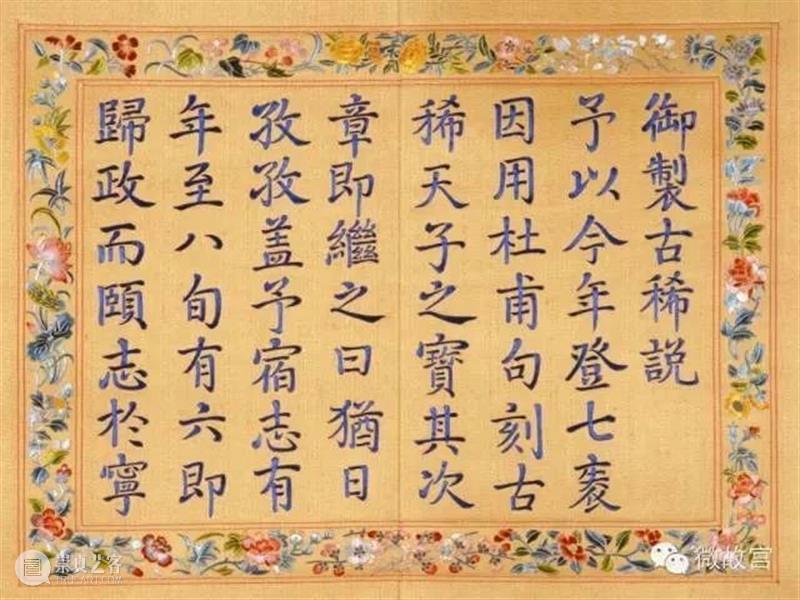 御製古稀説
予以今年登七袠
因用杜甫句刻古
稀天子之寶其次
章即繼之曰猶日
孜孜盖予宿志有
年至八旬有六即
歸政而頤志於寧
崇真艺客
微故宫